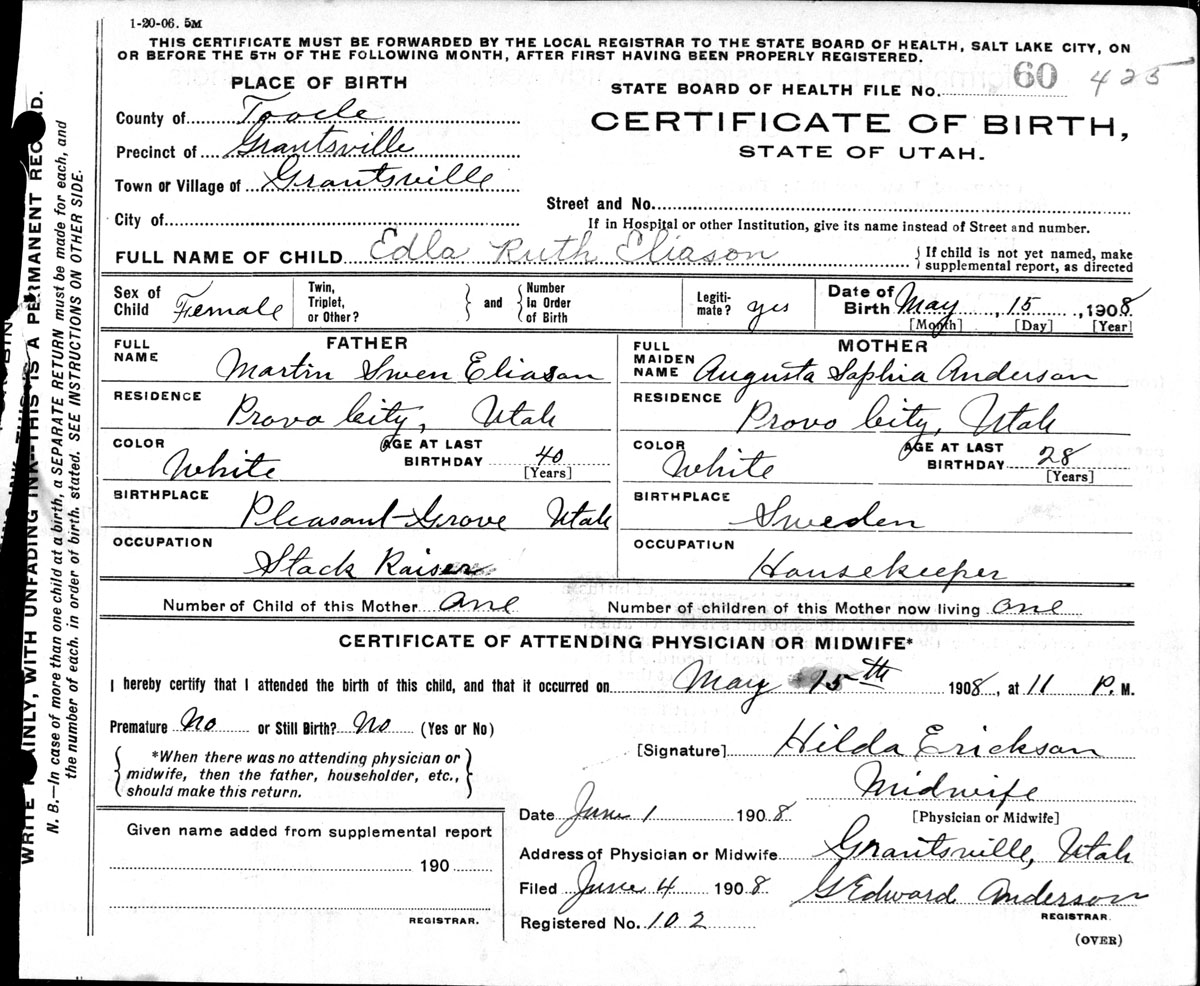 1-20-06. 5M
THIS CERTIFICATE MUST BE FORWARDED BY THE LOCAL REGISTRAR TO THE STATE BOARD OF HEALTH, SALT LAKE CITY, ON
OR BEFORE THE 5TH OF THE FOLLOWING MONTH, AFTER FIRST HAVING BEEN PROPERLY REGISTERED.
PLACE OF BIRTH
STATE BOARD OF HEALTH FILE No. 60 425
County of Tooele
CERTIFICATE OF BIRTH,
Precinct of Grantsville
STATE OF UTAH.
Town or Village of Grantsville
Street and No.
City of
If in Hospital or other Institution, give its name instead of Street and number.
FULL NAME OF CHILD Edla Ruth Eliason
{ If child is not yet named, make
supplemental report, as directed
Sex of Child Female
Twin, Triplet, or Other? } and { Number in Order of Birth
Legiti-mate? yes
Date of Birth May, 15, 1908
[Month] [Day] [Year]
FATHER
FULL NAME Martin Swen Eliason
RESIDENCE Provo City, Utah
COLOR White
AGE AT LAST BIRTHDAY 40
[Years]
BIRTHPLACE Pleasant Grove Utah
OCCUPATION Stock Raiser
MOTHER
FULL MAIDEN NAME Augusta Sophia Anderson
RESIDENCE Provo City, Utah
COLOR White
AGE AT LAST BIRTHDAY 28
[Years]
BIRTHPLACE Sweden
OCCUPATION Housekeeper
Number of Child of this Mother one
Number of children of this Mother now living one
CERTIFICATE OF ATTENDING PHYSICIAN OR MIDWIFE*
I hereby certify that I attended the birth of this child, and that it occurred on May 15th 1908, at 11 P. M.
Premature No or Still Birth? No (Yes or No)
[Signature] Hilda Erickson
{ *When there was no attending physician or
midwife, then the father, householder, etc.,
should make this return. }
Midwife
[Physician or Midwife]
Date June 1 1908
Given name added from supplemental report
190
REGISTRAR.
Address of Physician or Midwife Grantsville, Utah
Filed June 4 1908
G Edward Anderson
REGISTRAR.
Registered No. 102
(OVER)
WRITE PLAINLY, WITH UNFADING INK--THIS IS A PERMANENT RECORD.
N. B.—In case of more than one child at a birth, a SEPARATE RETURN must be made for each, and
the number of each, in order of birth, stated. SEE INSTRUCTIONS ON OTHER SIDE.